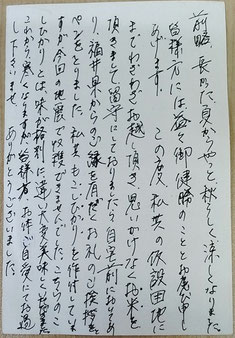 前略、長かった夏からやっと秋らしく涼しくなりました。
皆様方には益々御健勝のこととお慶び申し
あげます。　この度、私共の仮設団地に
までわざわざお越し頂き、思いがけなくお米を
頂きまして、留守にしておりましたら自宅前においてあ
り、福井県からのご縁を頂だきお礼のご挨拶を
ペンをとりました。私共もこしひかりを作付していま
すが今回の地震で収穫できませんでした。そちらのこ
しひかりとは、味が格別に違い大変美味しく
これから寒くなりますが皆様、お体ご自愛にてお過
し下さいませ。　ありがとうございました。